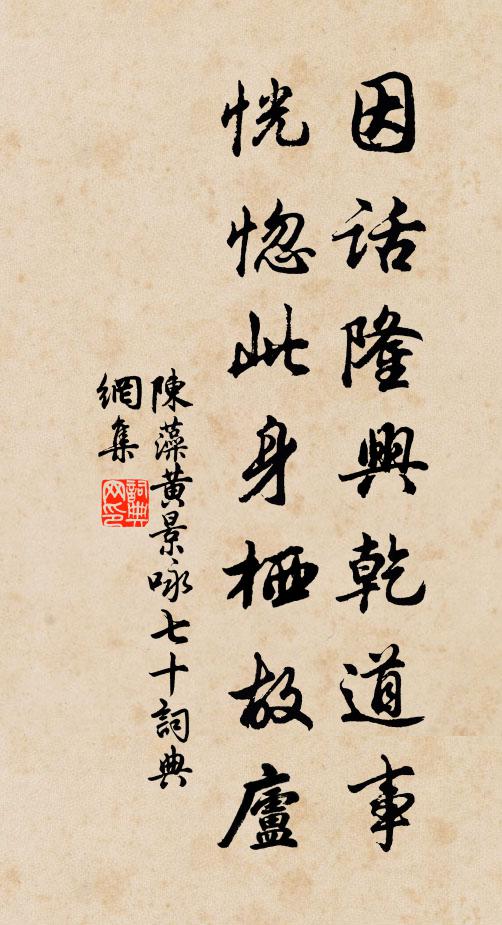 因話隆興乾道事
恍惚此身栖故廬
陳藻黃景咏七十詞典
網集
詞典
网印